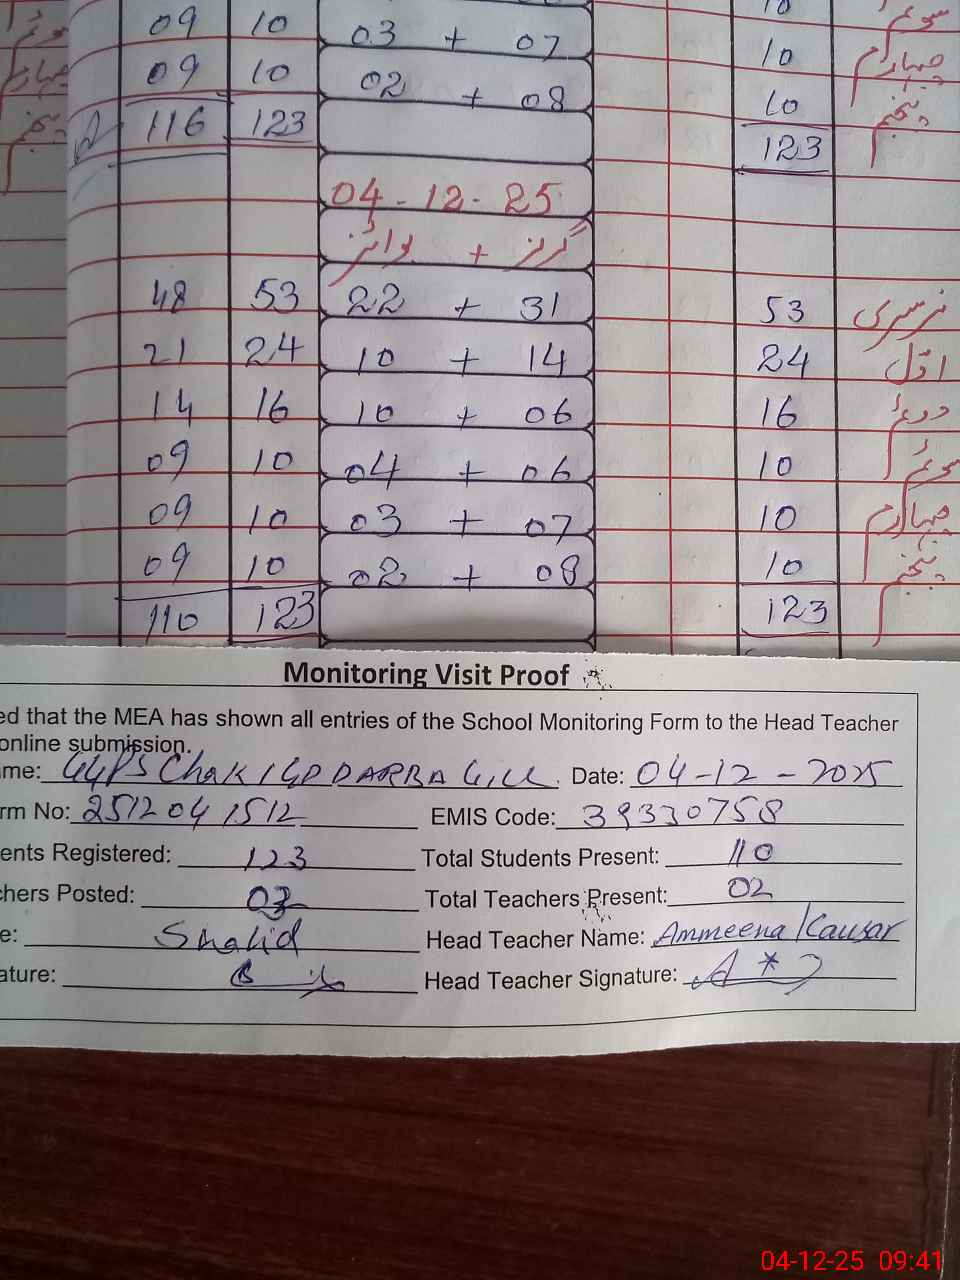 10
09 10 03 + 07 10
09 10 02 + 08 10
116 123 123
04-12-25
بوائز + گرلز
48 53 22 + 31 53 نرسری
21 24 10 + 14 24 اوّل
14 16 10 + 06 16 دوئم
09 10 04 + 06 10 سوئم
09 10 03 + 07 10 چہارم
09 10 02 + 08 10 پنجم
110 123 123
Monitoring Visit Proof
ed that the MEA has shown all entries of the School Monitoring Form to the Head Teacher
online submission.
me: GGPS Chak Date: 04-12-2025
rm No: 2512041512 EMIS Code: 39330758
ents Registered: 123 Total Students Present: 110
chers Posted: Total Teachers Present: 02
e: Shahid Head Teacher Name: Ammeena Kausar
ature: Head Teacher Signature:
04-12-25 09:41